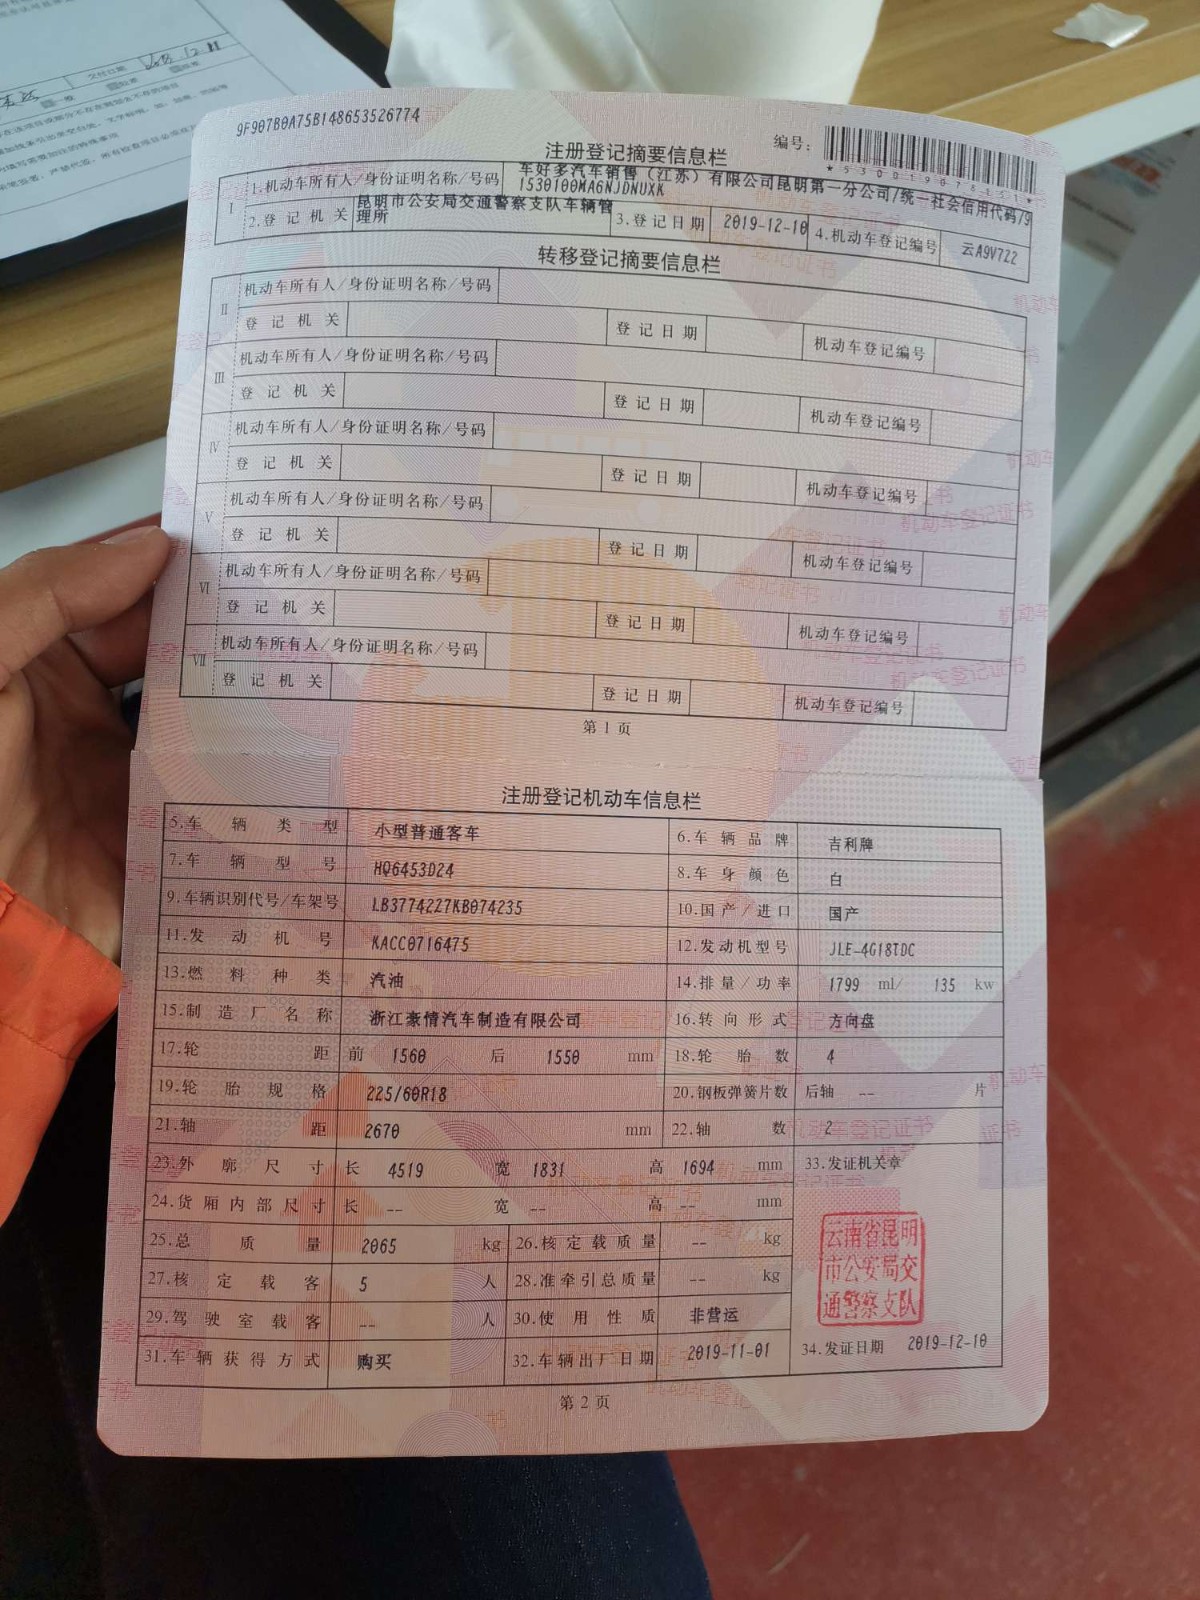 9F907B0A75B148653526774
编号：
*530019078151*
注册登记摘要信息栏
I
1.机动车所有人/身份证明名称/号码 车好多汽车销售（江苏）有限公司昆明第一分公司/统一社会信用代码/91530100MA6NJDNUXK
2.登记机关 昆明市公安局交通警察支队车辆管理所 3.登记日期 2019-12-10 4.机动车登记编号 云A9V7Z2
转移登记摘要信息栏
II 机动车所有人/身份证明名称/号码
登记机关 登记日期 机动车登记编号
III 机动车所有人/身份证明名称/号码
登记机关 登记日期 机动车登记编号
IV 机动车所有人/身份证明名称/号码
登记机关 登记日期 机动车登记编号
V 机动车所有人/身份证明名称/号码
登记机关 登记日期 机动车登记编号
VI 机动车所有人/身份证明名称/号码
登记机关 登记日期 机动车登记编号
VII 机动车所有人/身份证明名称/号码
登记机关 登记日期 机动车登记编号
第 1 页
注册登记机动车信息栏
5.车辆类型 小型普通客车 6.车辆品牌 吉利牌
7.车辆型号 HQ6453D24 8.车身颜色 白
9.车辆识别代号/车架号 LB3774227KB074235 10.国产/进口 国产
11.发动机号 KACC0716475 12.发动机型号 JLE-4G18TDC
13.燃料种类 汽油 14.排量/功率 1799 ml/ 135 kw
15.制造厂名称 浙江豪情汽车制造有限公司 16.转向形式 方向盘
17.轮距 前 1560 后 1550 mm 18.轮胎数 4
19.轮胎规格 225/60R18 20.钢板弹簧片数 后轴 -- 片
21.轴距 2670 mm 22.轴数 2
23.外廓尺寸 长 4519 宽 1831 高 1694 mm 33.发证机关章
24.货厢内部尺寸 长 -- 宽 -- 高 -- mm
25.总质量 2065 kg 26.核定载质量 -- kg
27.核定载客 5 人 28.准牵引总质量 -- kg
29.驾驶室载客 -- 人 30.使用性质 非营运
31.车辆获得方式 购买 32.车辆出厂日期 2019-11-01 34.发证日期 2019-12-10
云南省昆明
市公安局交
通警察支队
第 2 页